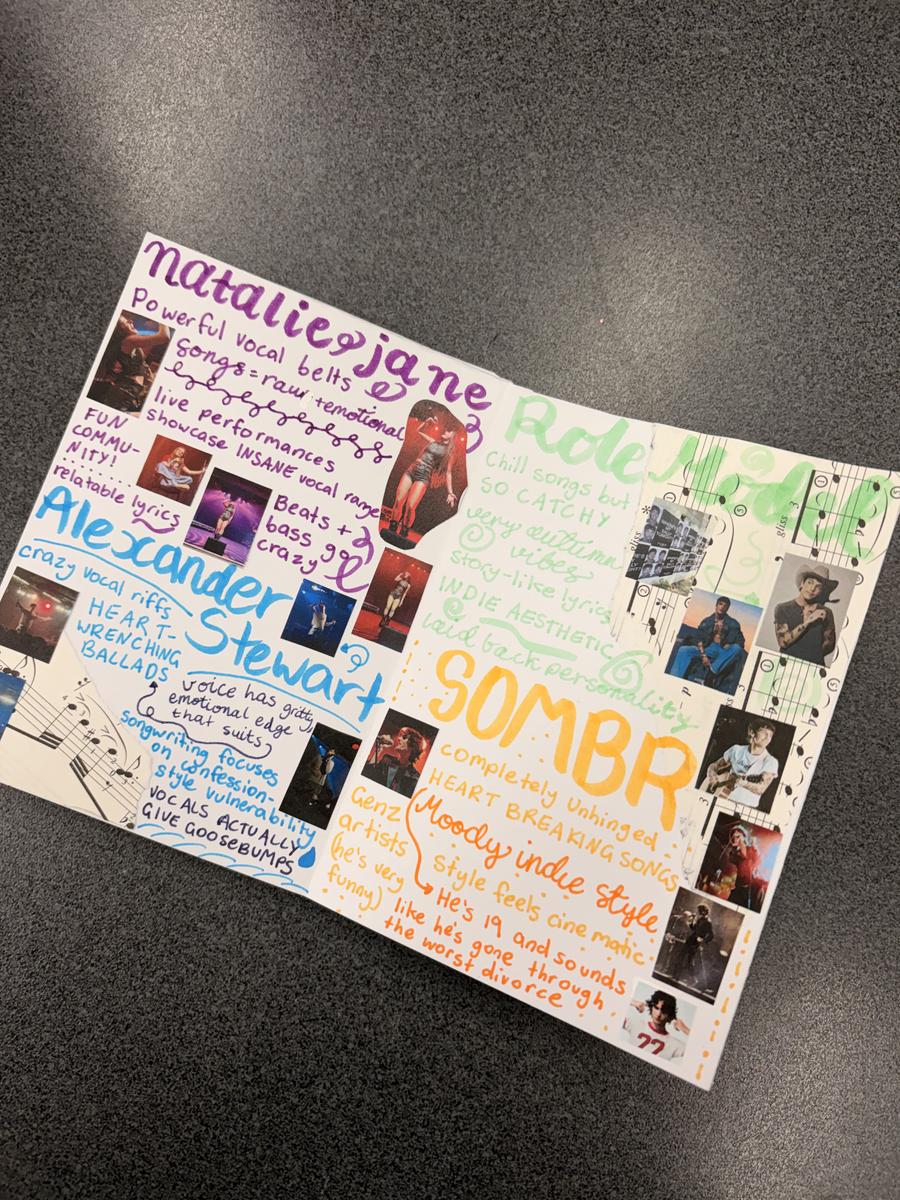 natalie jane
Powerful vocal belts
songs = raw + emotional
live performances
showcase INSANE vocal range
FUN
COMMU-
NITY!
relatable lyrics
Beats +
bass go
crazy
Alexander
Stewart
crazy vocal riffs
HEART-
WRENCHING
BALLADS
voice has gritty,
emotional edge
that suits
songwriting focuses
on confession-
style vulnerability
VOCALS ACTUALLY
GIVE GOOSEBUMPS
Role Model
Chill songs but
SO CATCHY
very autumn
vibes
story-like lyrics
INDIE AESTHETIC
laid back personality
gliss
3
gliss
SOMBR
completely unhinged
HEART BREAKING SONGS
Genz
artists
(he's very
funny)
Moody indie style
style feels cinematic
He's 19 and sounds
like he's gone through
the worst divorce
77